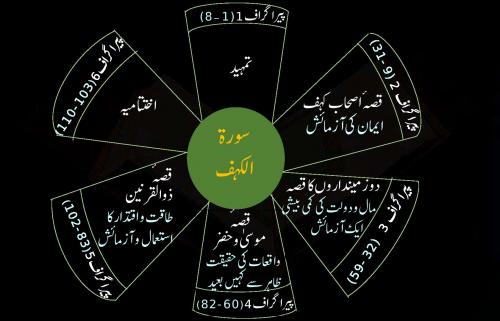 سورۃ
الکہف
پیراگراف1(1-8)
تمہید
پیراگراف 2 (9-31)
قصہ اصحاب کہف
ایمان کی آزمائش
پیراگراف 3 (32-59)
دو زمینداروں کا قصہ
مال و دولت کی کمی بیشی
ایک آزمائش
پیراگراف4 (60-82)
قصہ
موسیٰ و خضر
واقعات کی حقیقت
ظاہر سے کہیں بعید
پیراگراف5 (83-102)
قصہ
ذوالقرنین
طاقت و اقتدار کا
استعمال و آزمائش
پیراگراف6 (103-110)
اختتامیہ